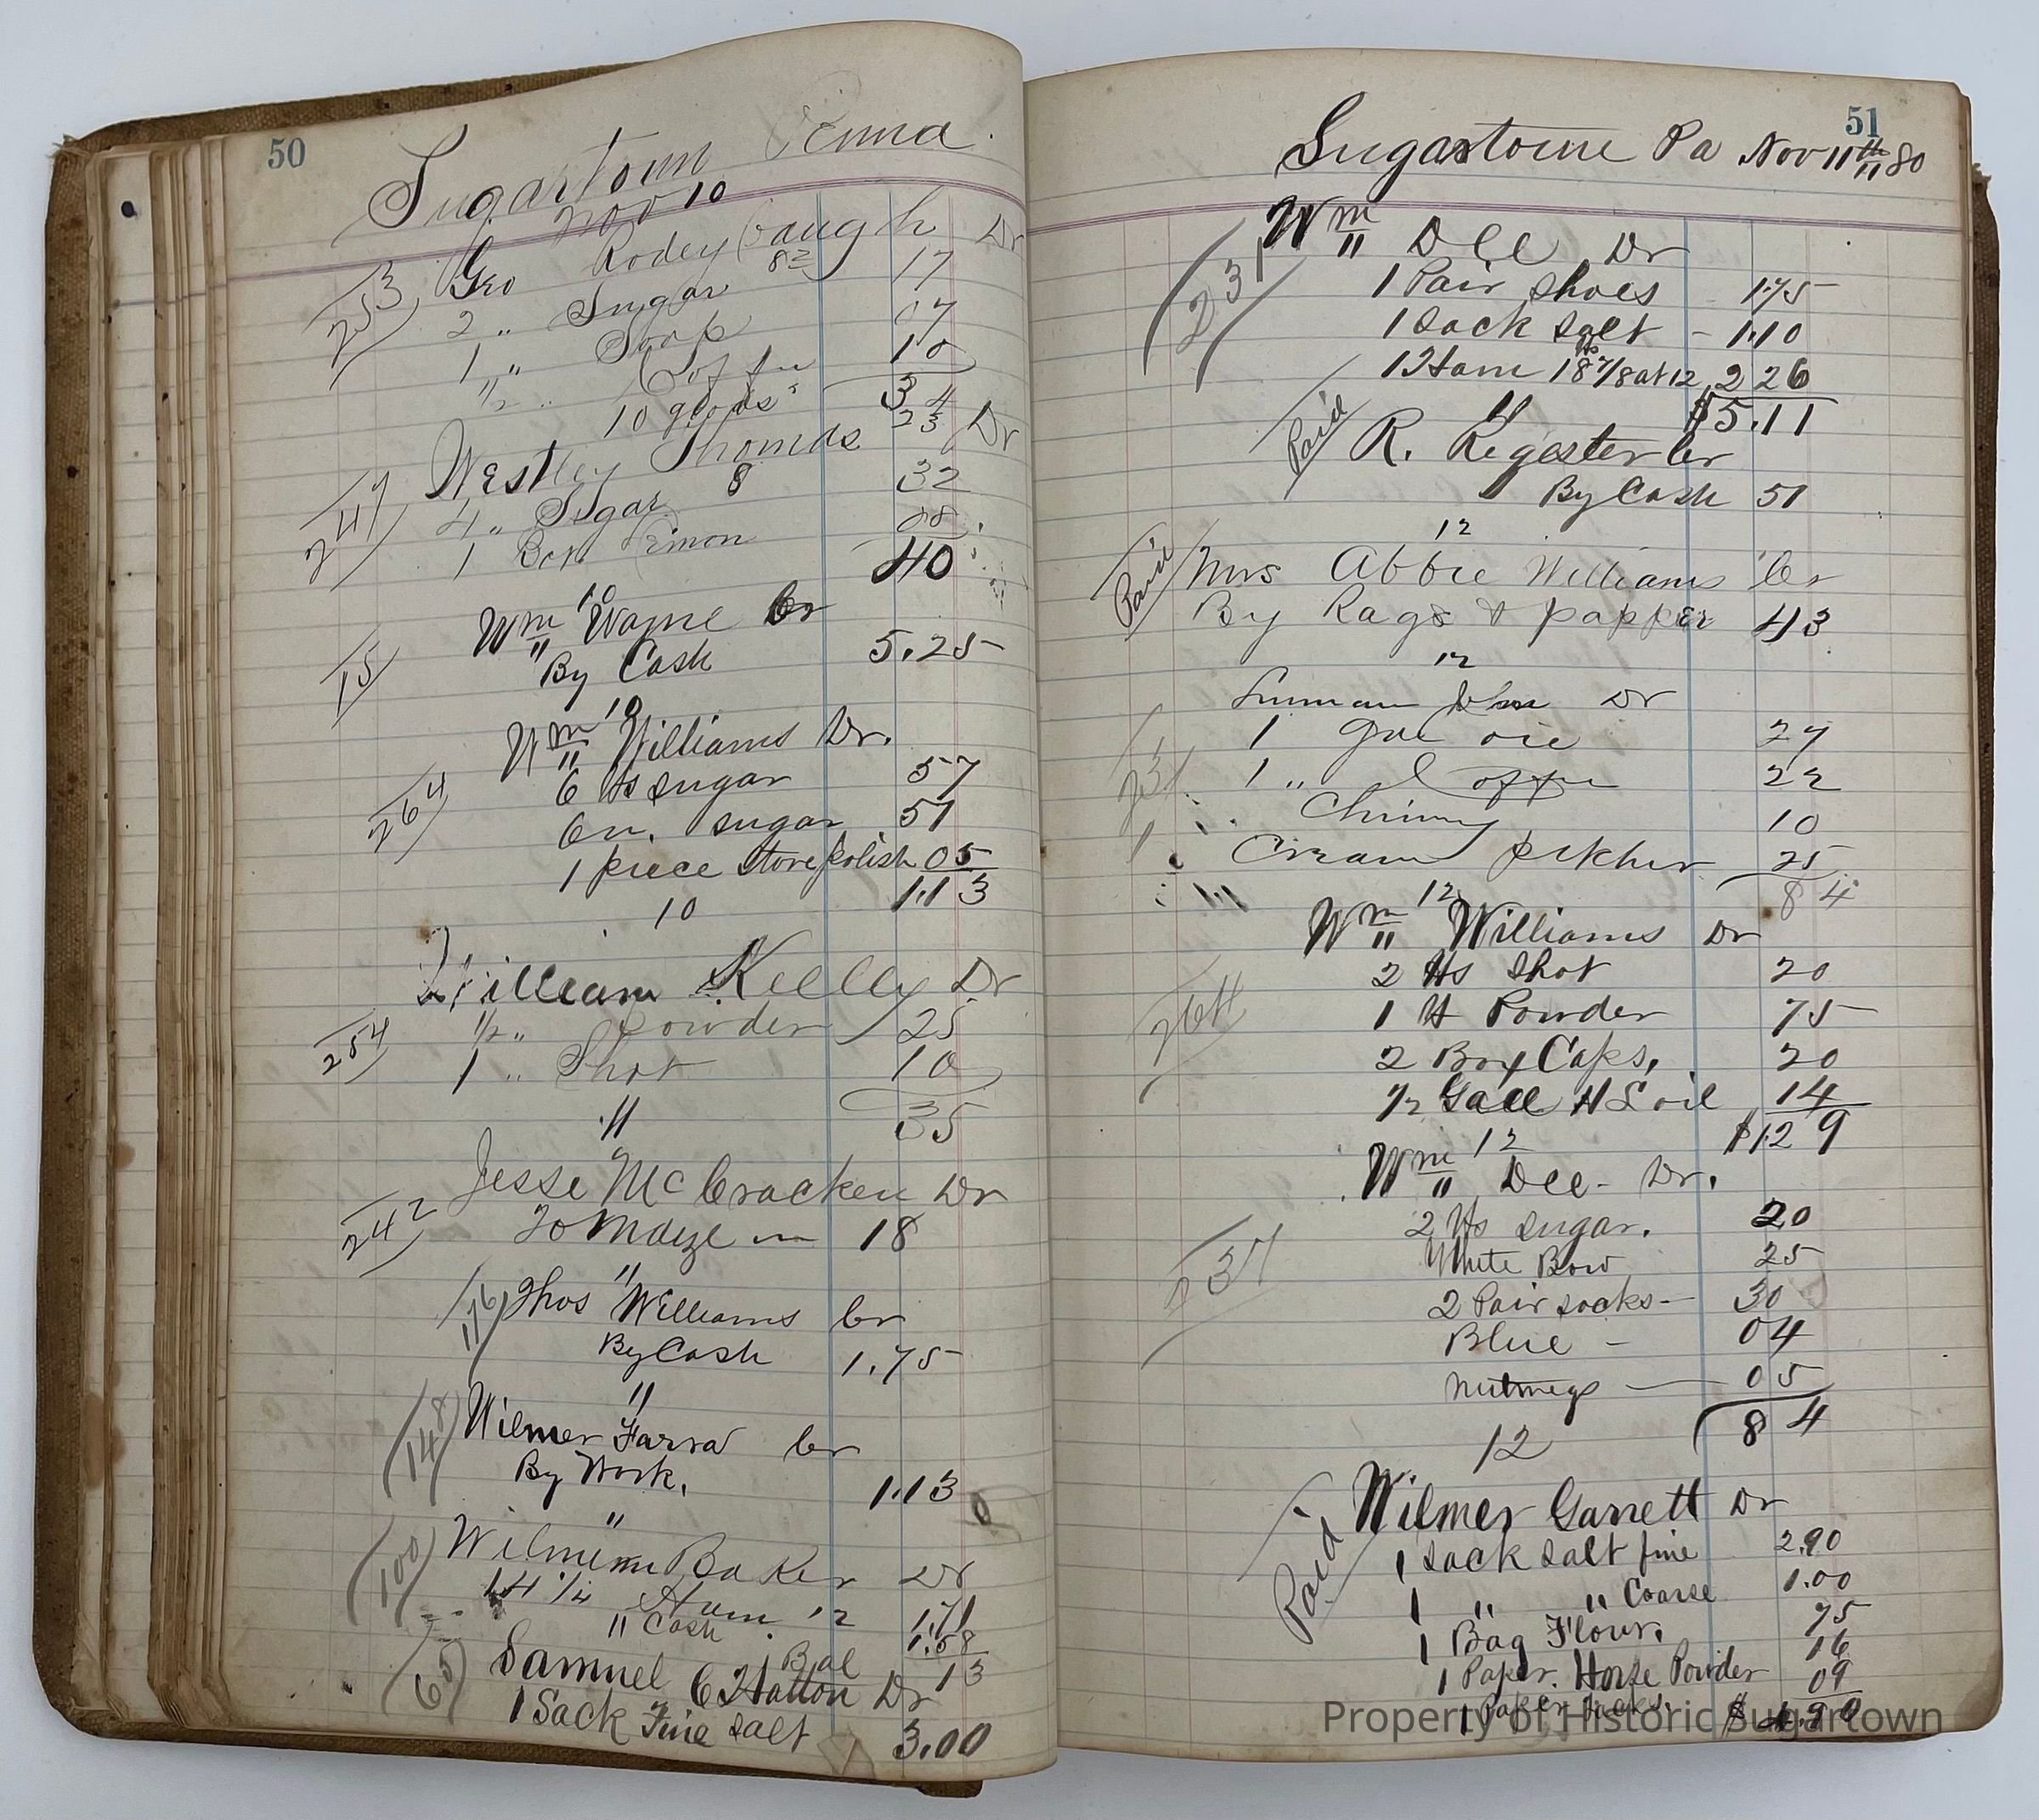 50
Sugartown Penna
Nov 10
253 Geo Rodey baugh Dr
2 " Sugar 8½ 17
1 " Soap 07
½ " Coffee 10
34
10 goods 23
247 Westley Thomas Dr
4 " Sugar 8 32
1 Lemon 08
40
10
15 Wm Wayne Cr
" By Cash 5.25
10
264 Wm Williams Dr.
6 lbs sugar 57
6 " sugar 51
1 piece stove polish 05
1.13
10
254 William Kelley Dr
½ " Powder 25
1 " Shot 10
35
11
242 Jesse McCracken Dr
To Maize 18
"
176 Thos Williams Cr
By Cash 1.75
"
148 Wilmer Farra Cr
By Work. 1.13
"
100 Baker Dr
14¼ Ham 12 1.71
" Cash 1.58
Bal 13
65 Samuel C Hatton Dr
1 Sack Fine salt 3.00
51
Sugartown Pa Nov 11th 80
231 Wm Dll Dr
1 Pair shoes 1.75
1 Sack salt - 1.10
1 Ham 18 7/8 at 12 2 26
$5.11
11
Paid R. Regester Cr
By Cash 51
12
Paid Mrs Abbie Williams Cr
By Rags & papper 43
12
John Dr
1 Gal oil 27
1 " Coffee 22
Chimny 10
Cream pitcher 25
84
12
264 Wm Williams Dr
2 lbs Shot 20
1 lb Powder 75
2 Box Caps, 20
½ Gall H L oil 14
$1.29
12
Wm Dll - Dr.
2 lbs sugar. 20
231 White Bow 25
2 Pair socks - 30
Blue - 04
Nutmegs 05
84
12
Paid Wilmer Garrett Dr
1 sack salt fine 2.90
1 " " Coarse 1.00
1 Bag Flour. 75
1 Paper. Horse Powder 16
1 Paper Tacks. 09
$ 4.90
Property of Historic Sugartown